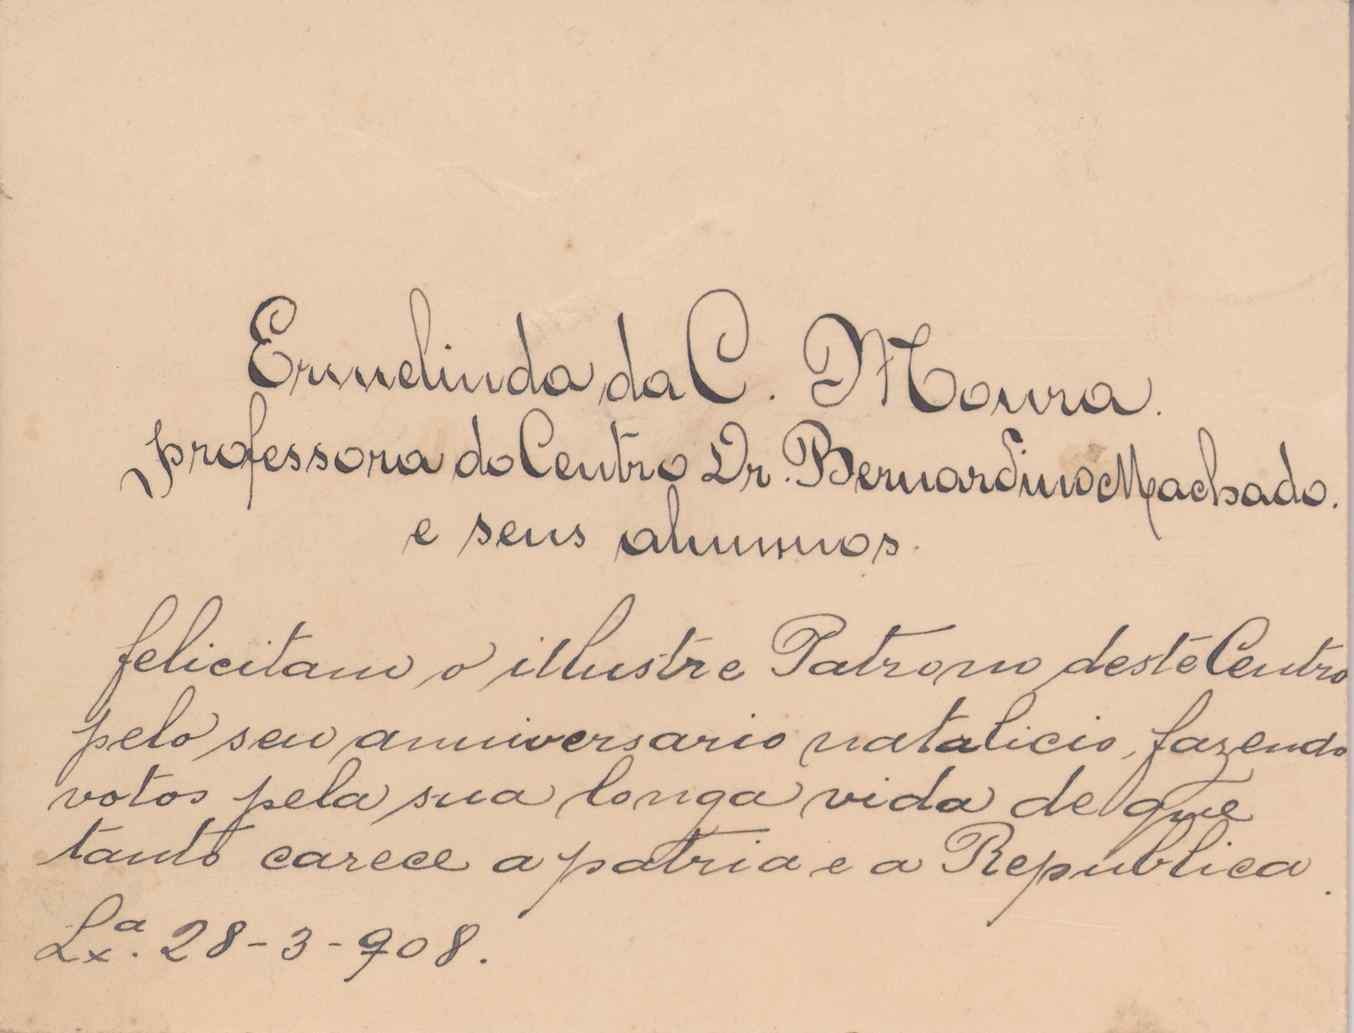 Ermelinda da C. Moura.
professora do Centro Dr. Bernardino Machado.
e seus alumnos.
felicitam o illustre Patrono deste Centro
pelo seu anniversario natalicio, fazendo
votos pela sua longa vida de que
tanto carece a patria e a Republica.
Lxª. 28-3-908.